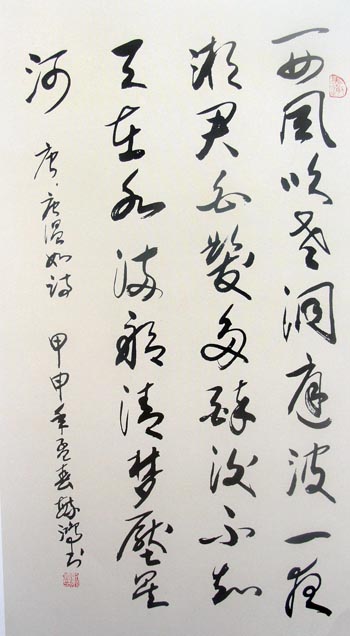 西風吹老洞庭波一夜
湘君白髮多醉後不知
天在水滿船清夢壓星
河
唐·唐温如詩
甲申年孟春鴻書